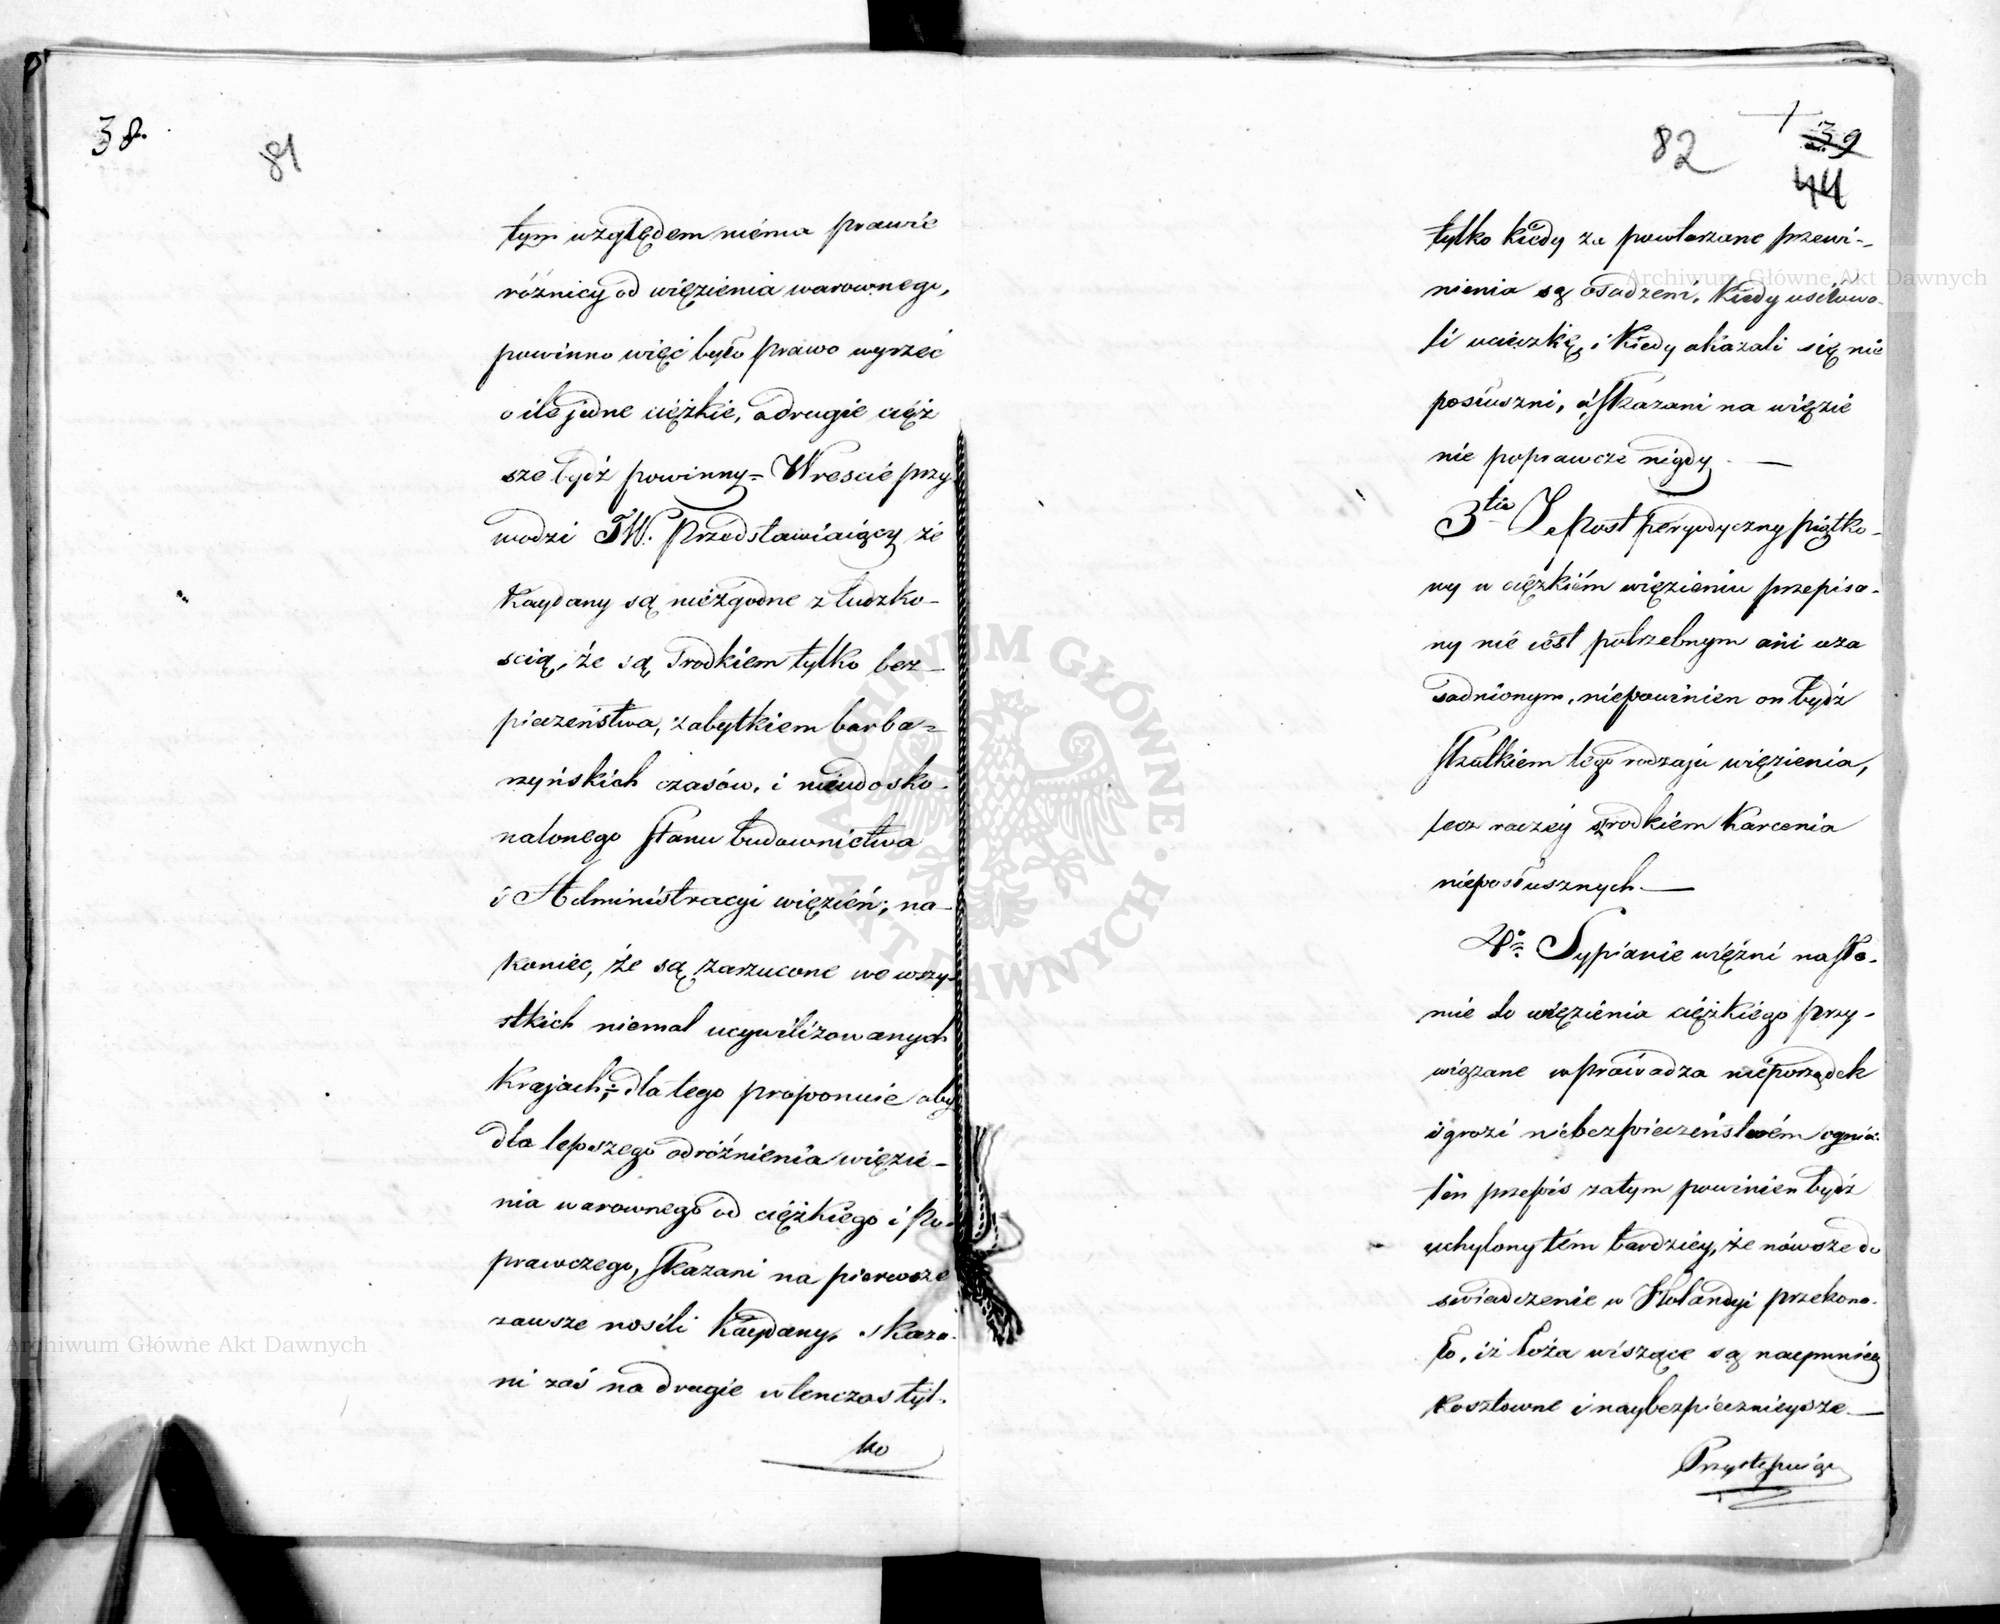 38.
81
tym względem niéma prawie
różnicy od więzienia warownego,
powinno więc było prawo wyrzec
o ile jedne ciężkie, a drugie cięż
sze bydź powinny = Wreście przy
wodzi JW. Przedstawiaiący że
Kaydany są niezgodne z ludzko-
scią, że są srodkiem tylko bez-
pieczeństwa, zabytkiem barba=
rzyńskich czasów, i nieudosko-
nalonego stanu budownictwa
i Administracyi więzień; na-
koniec, że są zarzucone we wszy-
stkich niemal ucywilizowanych
Krajach; dla tego proponuie aby
dla lepszego odróżnienia więzie-
nia warownego od ciężkiego i Po-
prawczego, skazani na pierwsze
zawsze nosili Kaydany, skaza-
ni zaś na drugie wtenczas tyl-
ko
82
39
44
tylko kiedy za powtarzane przewi-
nienia są osadzeni, Kiedy usiłowa-
li ucieczkę, i Kiedy okazali się nie
posłuszni, a skazani na więzie
nie poprawcze nigdy. —
3tio Że Post peryodyczny piątko-
wy w ciężkiém więzieniu przepisa-
ny nie iest potrzebnym ani uza
sadnionym, niepowinien on bydź
skutkiem tego rodzaju więzienia,
lecz raczéy srodkiem Karcenia
nieposłusznych. —
4o Sypianie więźni na sło-
mie do więzienia ciężkiego przy-
wiązane wprowadza nieporządek
i grozi niebezpieczeństwém ognia:
ten przepis zatym powinien bydź
uchylony tém bardziéy, że nowsze do
swiadczenie w Holandyi przekona-
ło, iż łóża wiszące są naymniéy
kosztowne i naybezpiecznieysze —
Przystępuiąc
Archiwum Główne Akt Dawnych
Archiwum Główne Akt Dawnych
ARCHIWUM GŁÓWNE · AKT DAWNYCH ·